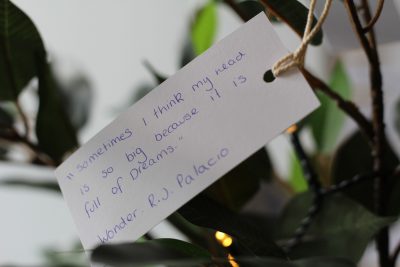 "sometimes I think my head
is so big because it is
full of Dreams."
Wonder. R.J. Palacio